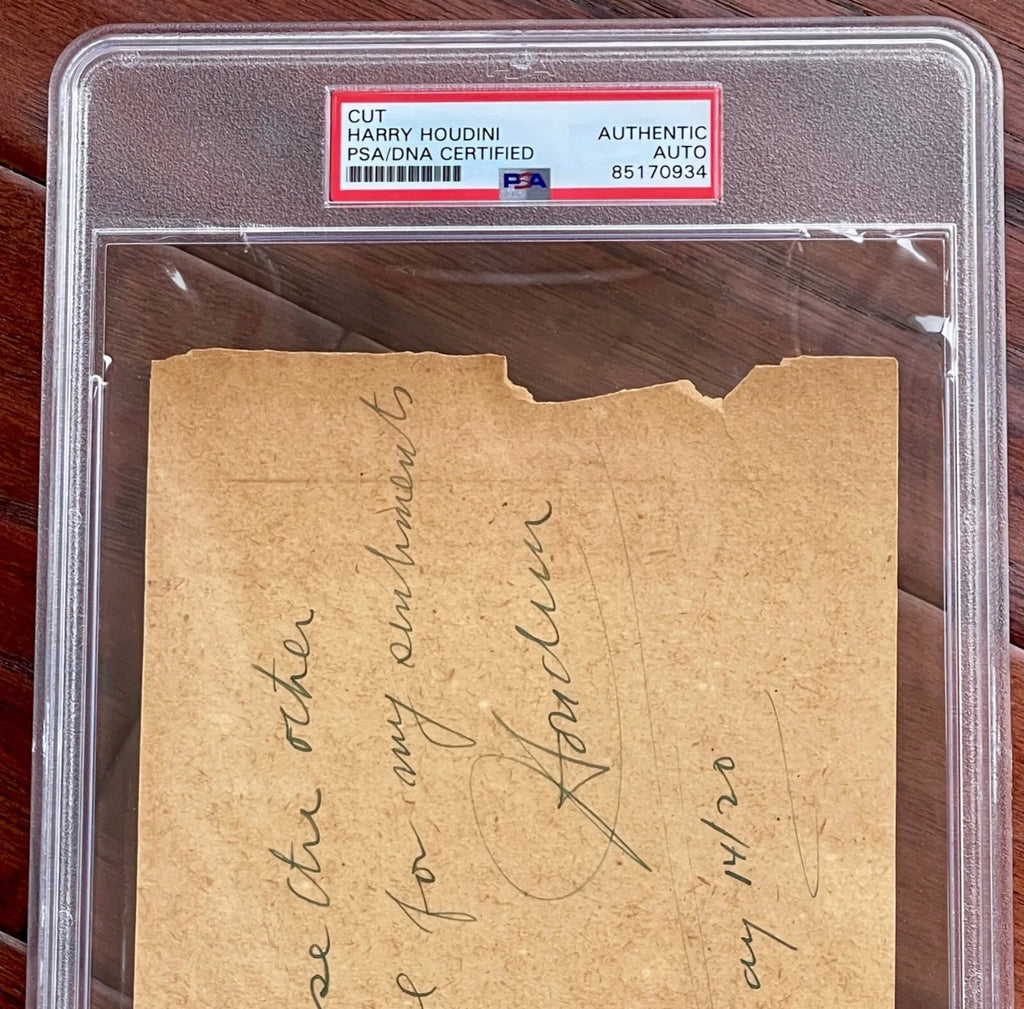 CUT
HARRY HOUDINI
PSA/DNA CERTIFIED
AUTHENTIC
AUTO
85170934
PSA
se the other
e for my sentiments
Houdini
ay 14/20